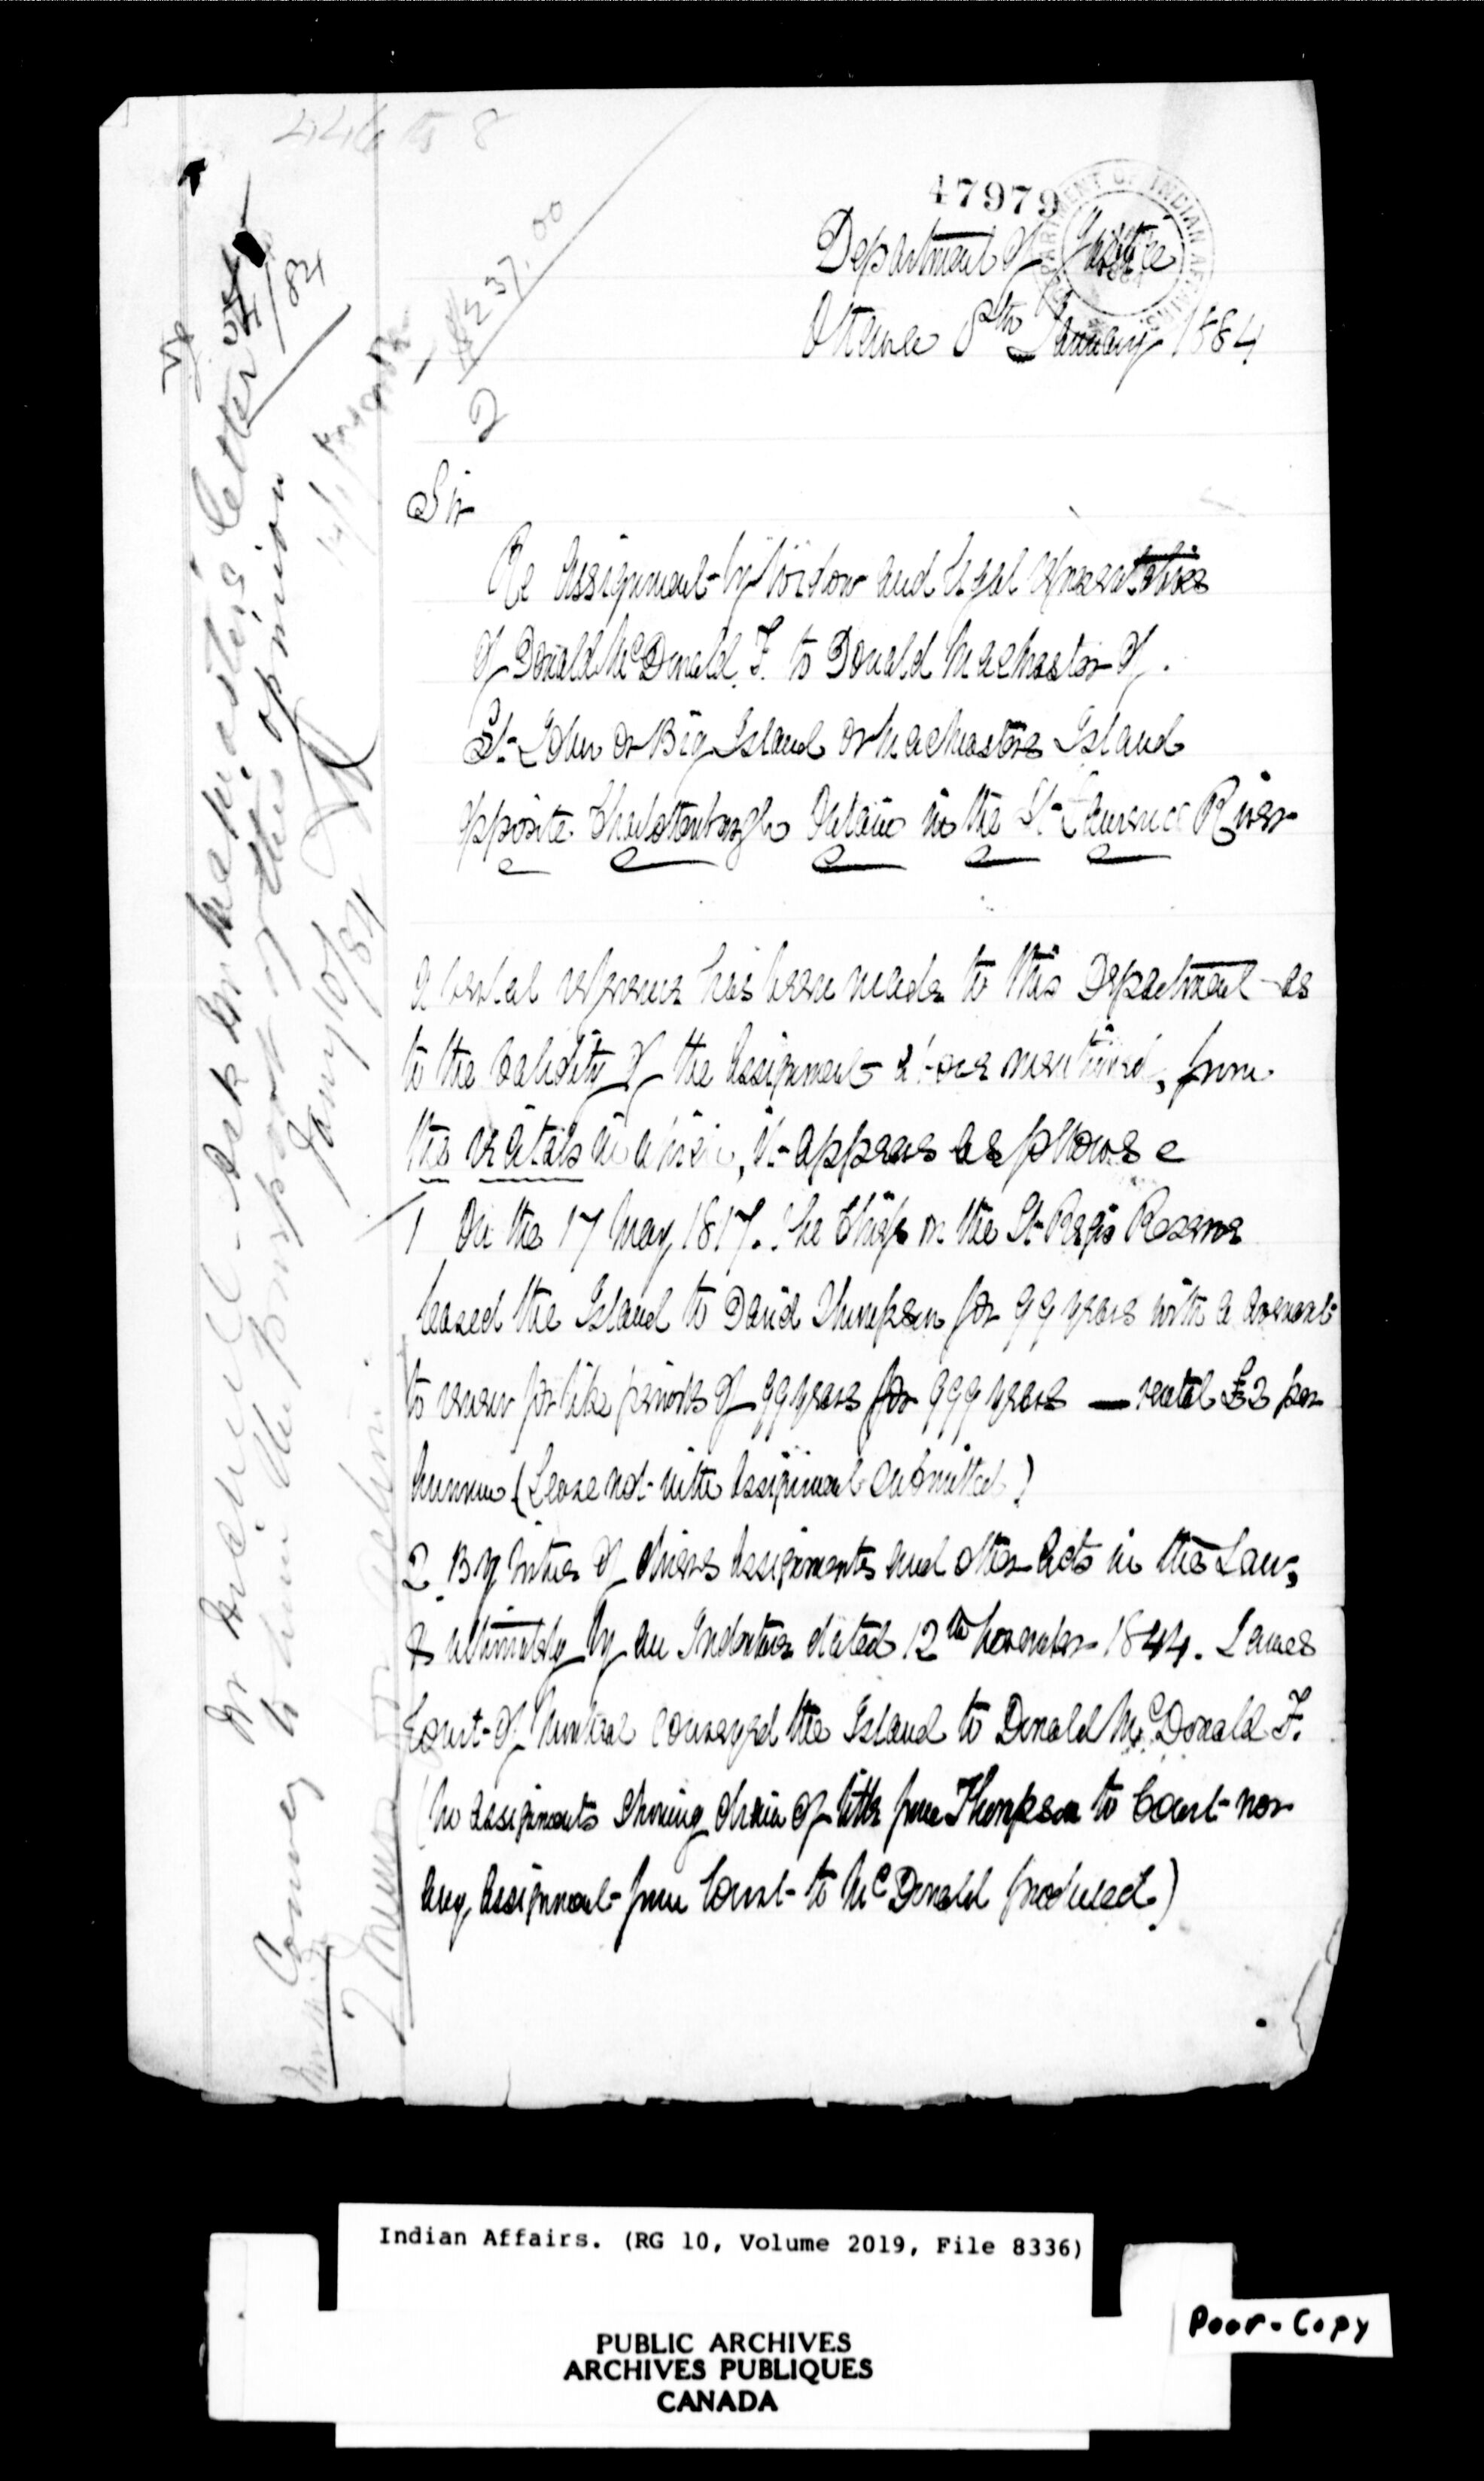 446 to 8
47979
DEPARTMENT OF INDIAN AFFAIRS
Department of Justice
Ottawa 8th January 1884
$237.00
2
Sir
Re Assignment by Widow and legal representatives
of Donald McDonald F. to Donald MacMaster of
St. John or Big Island or MacMasters Island
opposite Charlottenburgh Ontario in the St. Lawrence River
A verbal reference has been made to this Department as
to the validity of the Assignment above mentioned, from
the recitals in which, it appears as follows
1 On the 17 May, 1817. The Chiefs on the St Regis Reserve
leased the Island to David Thompson for 99 years with a covenant
to renew for like periods of 99 years for 999 years — rental £3 per
Annum (Lease not with Assignment submitted)
2 By virtue of divers Assignments and other Acts in the Law,
& ultimately by an Indenture dated 12th November 1844. James
Court of Montreal conveyed the Island to Donald McDonald F.
(No assignments showing chain of title from Thompson to Court nor
any Assignment from Court to McDonald produced)
ask for MacMaster's letter of
/84
to him the purport of this opinion
Jany 10/84
Convey
Indian Affairs. (RG 10, Volume 2019, File 8336)
PUBLIC ARCHIVES
ARCHIVES PUBLIQUES
CANADA
Poor-Copy